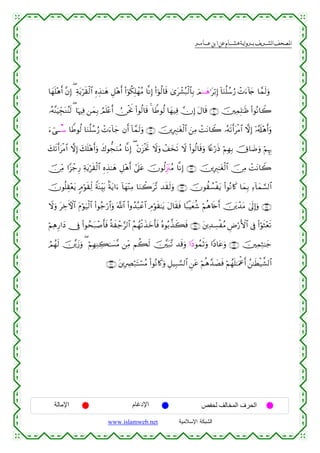 المصحف الشريف برواية هشام عن ابن عامر
وَلَمَّا جَآءَتْ رُسُلُنَآ إِبْرَٰهَٰمَ بِٱلْبُشْرَىٰ قَالُوٓا۟ إِنَّا مُهْلِكُوٓا۟ أَهْلِ هَٰذِهِ ٱلْقَرْيَةِ ۖ إِنَّ أَهْلَهَا
كَانُوا۟ ظَٰلِمِينَ ۝ قَالَ إِنَّ فِيهَا لُوطًا ۚ قَالُوا۟ نَحْنُ أَعْلَمُ بِمَن فِيهَا ۖ لَنُنَجِّيَنَّهُۥ
وَأَهْلَهُۥٓ إِلَّا ٱمْرَأَتَهُۥ كَانَتْ مِنَ ٱلْغَٰبِرِينَ ۝ وَلَمَّآ أَن جَآءَتْ رُسُلُنَا لُوطًا سِىٓءَ
بِهِمْ وَضَاقَ بِهِمْ ذَرْعًا وَقَالُوا۟ لَا تَخَفْ وَلَا تَحْزَنْ ۖ إِنَّا مُنَجُّوكَ وَأَهْلَكَ إِلَّا ٱمْرَأَتَكَ
كَانَتْ مِنَ ٱلْغَٰبِرِينَ ۝ إِنَّا مُنَزِّلُونَ عَلَىٰٓ أَهْلِ هَٰذِهِ ٱلْقَرْيَةِ رِجْزًا مِّنَ
ٱلسَّمَآءِ بِمَا كَانُوا۟ يَفْسُقُونَ ۝ وَلَقَد تَّرَكْنَا مِنْهَآ ءَايَةًۢ بَيِّنَةً لِّقَوْمٍ يَعْقِلُونَ
۝ وَإِلَىٰ مَدْيَنَ أَخَاهُمْ شُعَيْبًا فَقَالَ يَٰقَوْمِ ٱعْبُدُوا۟ ٱللَّهَ وَٱرْجُوا۟ ٱلْيَوْمَ ٱلْءَاخِرَ وَلَا
تَعْثَوْا۟ فِى ٱلْأَرْضِ مُفْسِدِينَ ۝ فَكَذَّبُوهُ فَأَخَذَتْهُمُ ٱلرَّجْفَةُ فَأَصْبَحُوا۟ فِى دَارِهِمْ
جَٰثِمِينَ ۝ وَعَادًا وَثَمُودًا وَقَد تَّبَيَّنَ لَكُم مِّن مَّسَٰكِنِهِمْ ۖ وَزَيَّنَ لَهُمُ
ٱلشَّيْطَٰنُ أَعْمَٰلَهُمْ فَصَدَّهُمْ عَنِ ٱلسَّبِيلِ وَكَانُوا۟ مُسْتَبْصِرِينَ ۝
الحرف المخالف لحفص الإدغام الإمالة
الشبكة الإسلامية www.islamweb.net